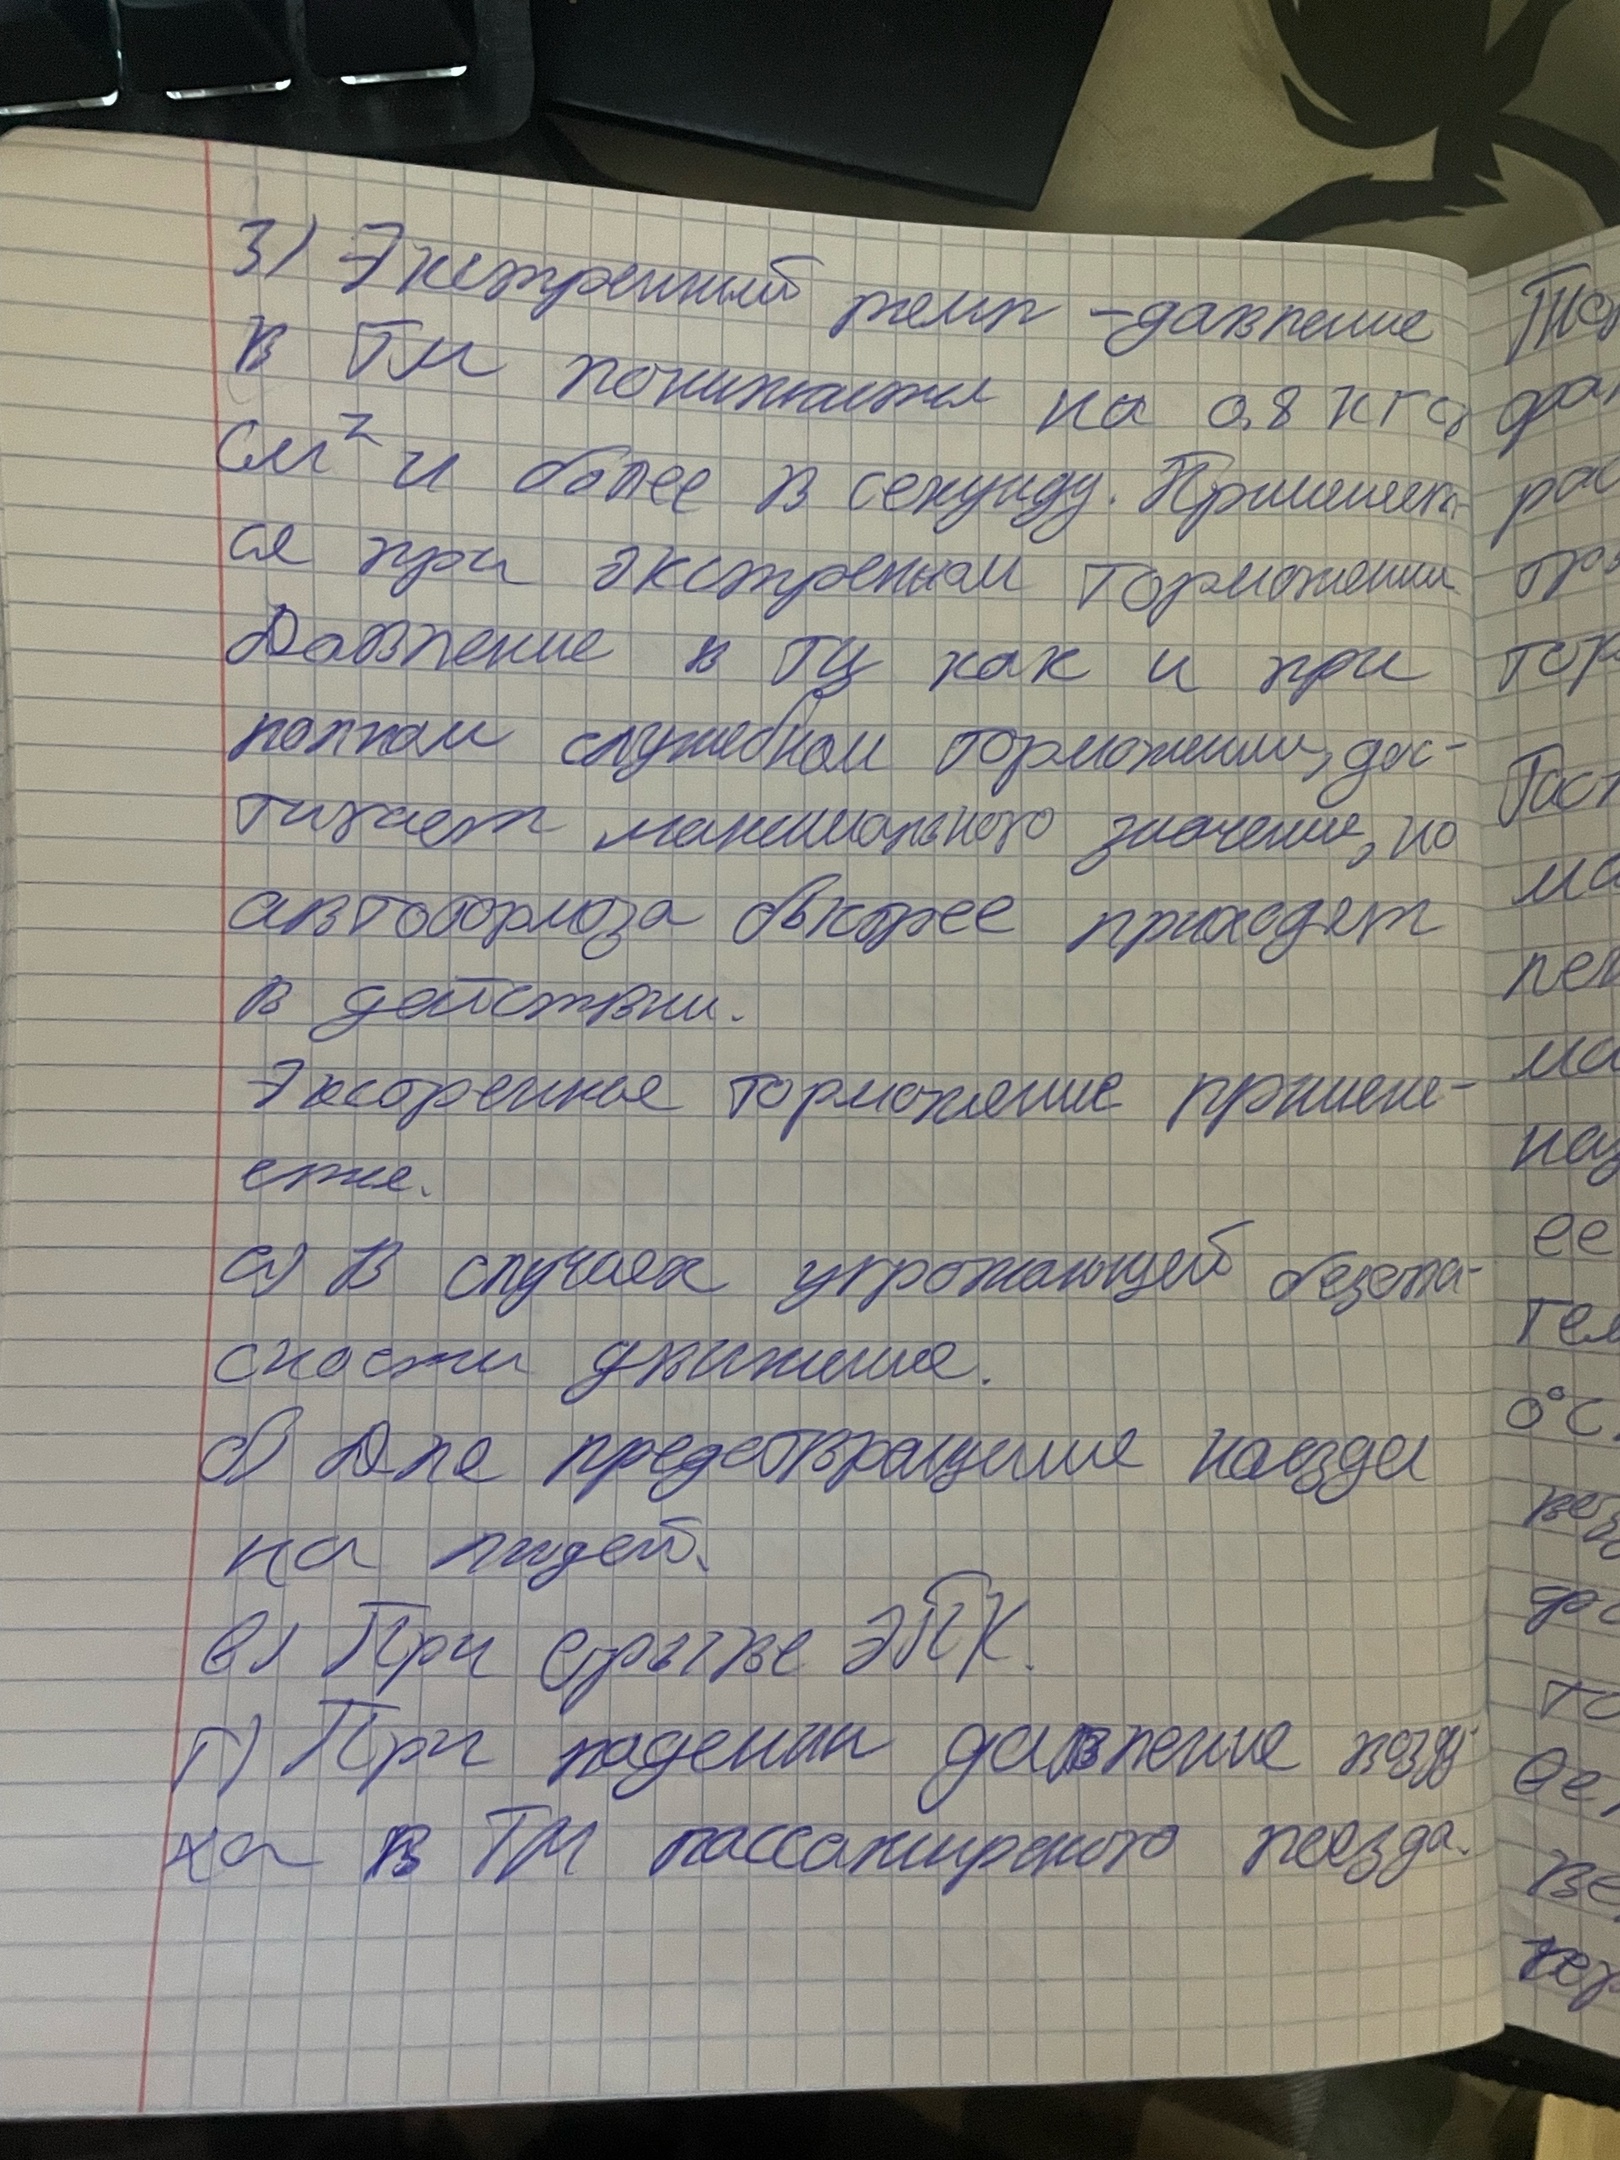 3) Экстренный темп - давление
в ТМ понижается на 0,8 кгс/
см² и более в секунду. Применяет-
ся при экстренном торможении.
Давление в ТЦ как и при
полном служебном торможении, дос-
тигает максимального значения, но
автотормоза быстрее приходят
в действии.
Экстренное торможение применя-
ется.
а) В случаях угрожающей безопа-
сности движения.
б) Для предотвращения наезда
на людей.
в) При срыве ЭПК.
г) При падении давления возду-
ха в ТМ пассажирского поезда.